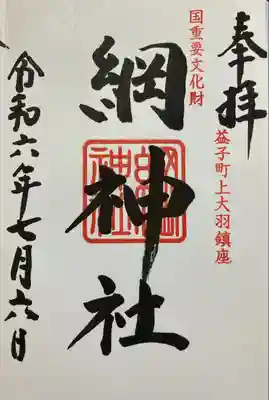 奉拝
国重要文化財
益子町上大羽鎮座
綱神社
綱神社
令和六年七月六日